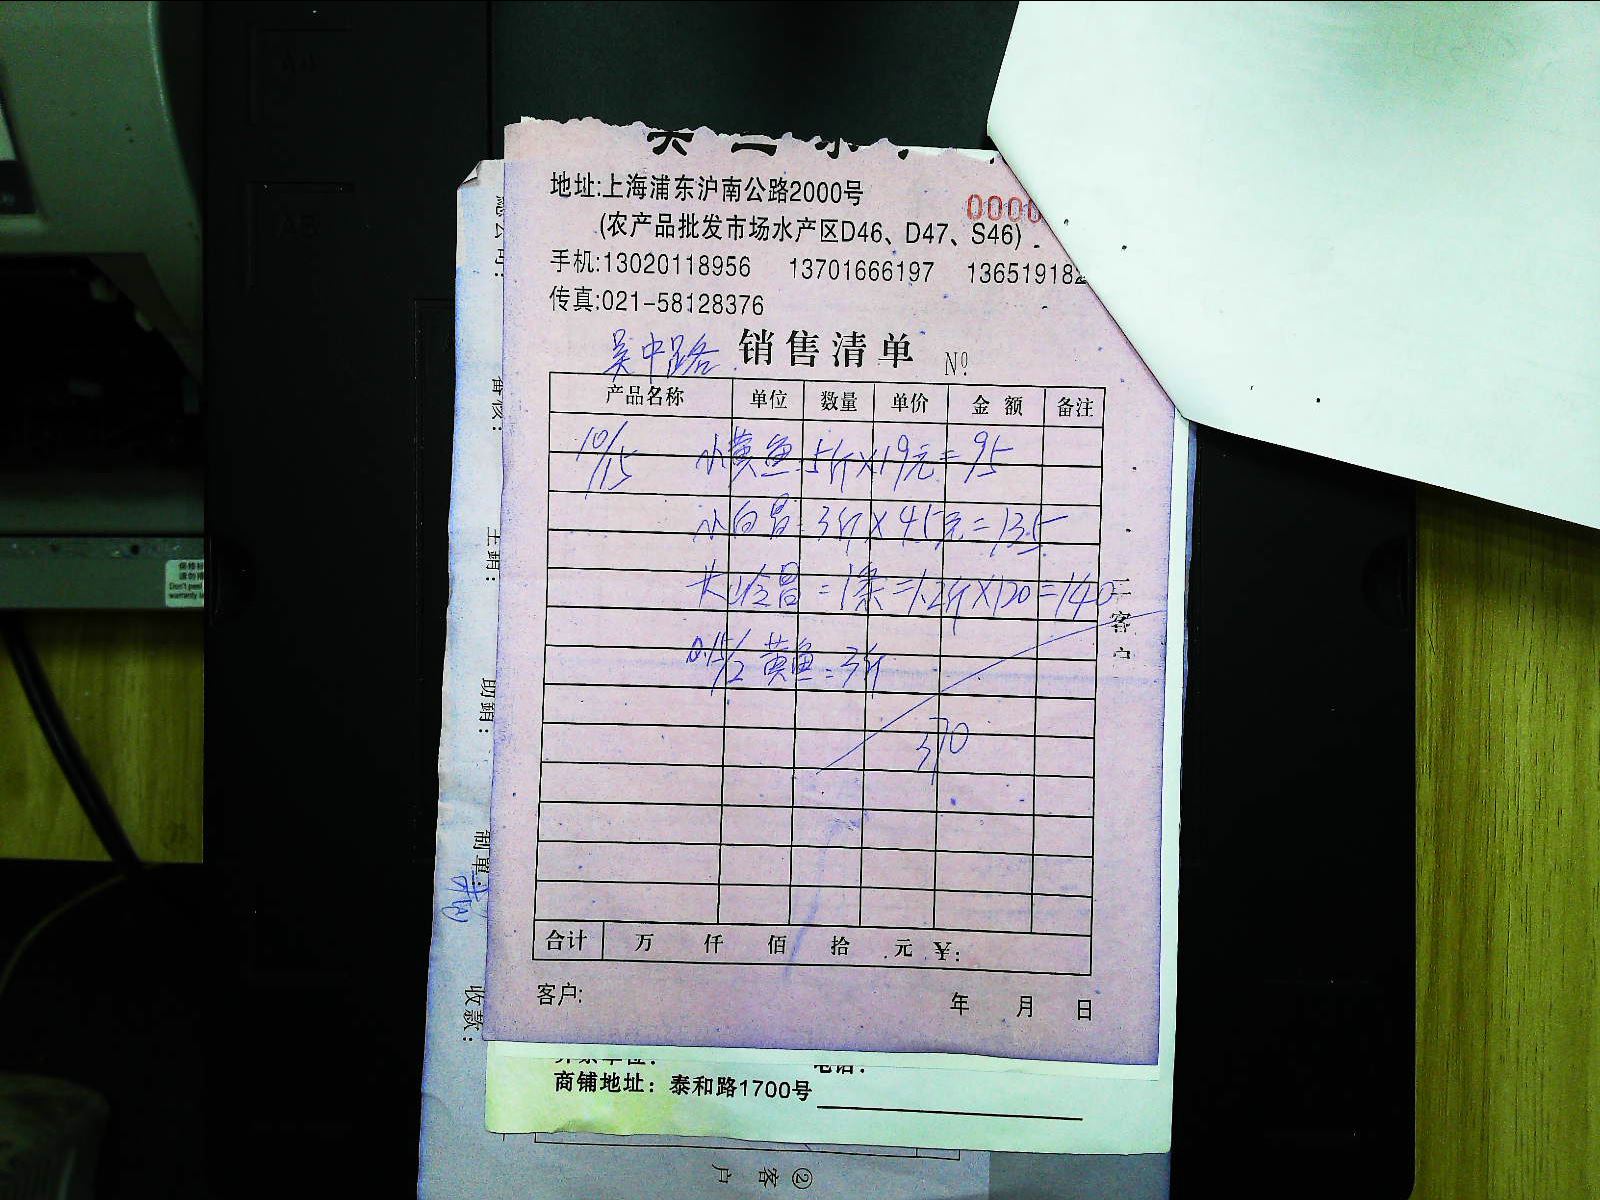 地址:上海浦东沪南公路2000号
0000
(农产品批发市场水产区D46、D47、S46)
手机:13020118956 13701666197 136519182
传真:021-58128376
吴中路 销售清单 Nº
产品名称 单位 数量 单价 金额 备注
10/15 小黄鱼:5斤×19元=95
小白昌:3斤×45元=135
大 昌=1条=1.2斤×120=140
黄鱼:3斤
370
合计 万 仟 佰 拾 元 ¥:
客户: 年 月 日
二客户
备收:
主銷:
助銷:
制單:
收款:
商铺地址：泰和路1700号
②客户